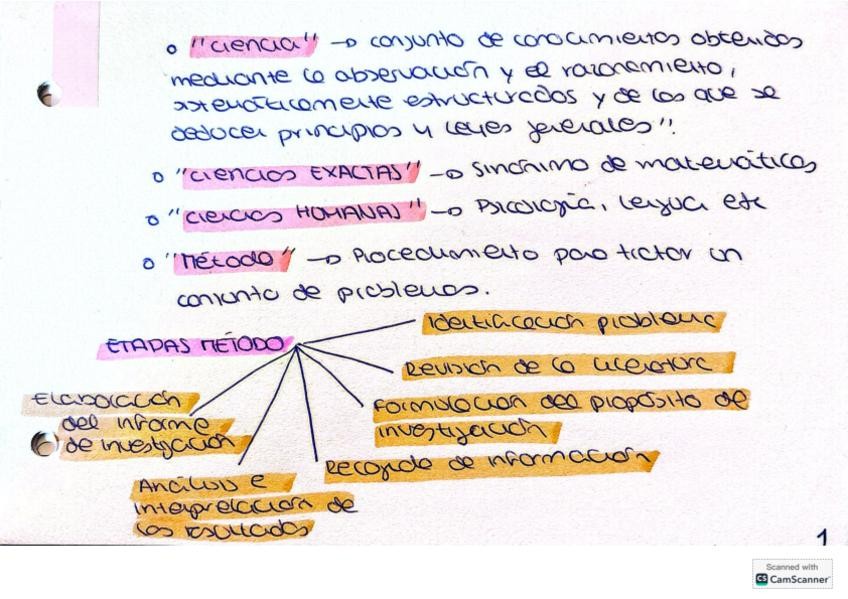 "ciencia" → conjunto de conocimientos obtenidos
mediante la observación y el razonamiento,
sistemáticamente estructurados y de los que se
deducen principios y leyes generales".
"ciencias EXACTAS" → Sinónimo de matemáticas
"ciencias HUMANAS" → Psicología, lengua etc
"Método" → Procedimiento para tratar un
conjunto de problemas.
ETAPAS MÉTODO
Identificación problema
Revisión de la literatura
Formulación del propósito de
investigación
Recogida de información
Análisis e
interpretación de
los resultados
Elaboración
del informe
de investigación
1
Scanned with
CS CamScanner